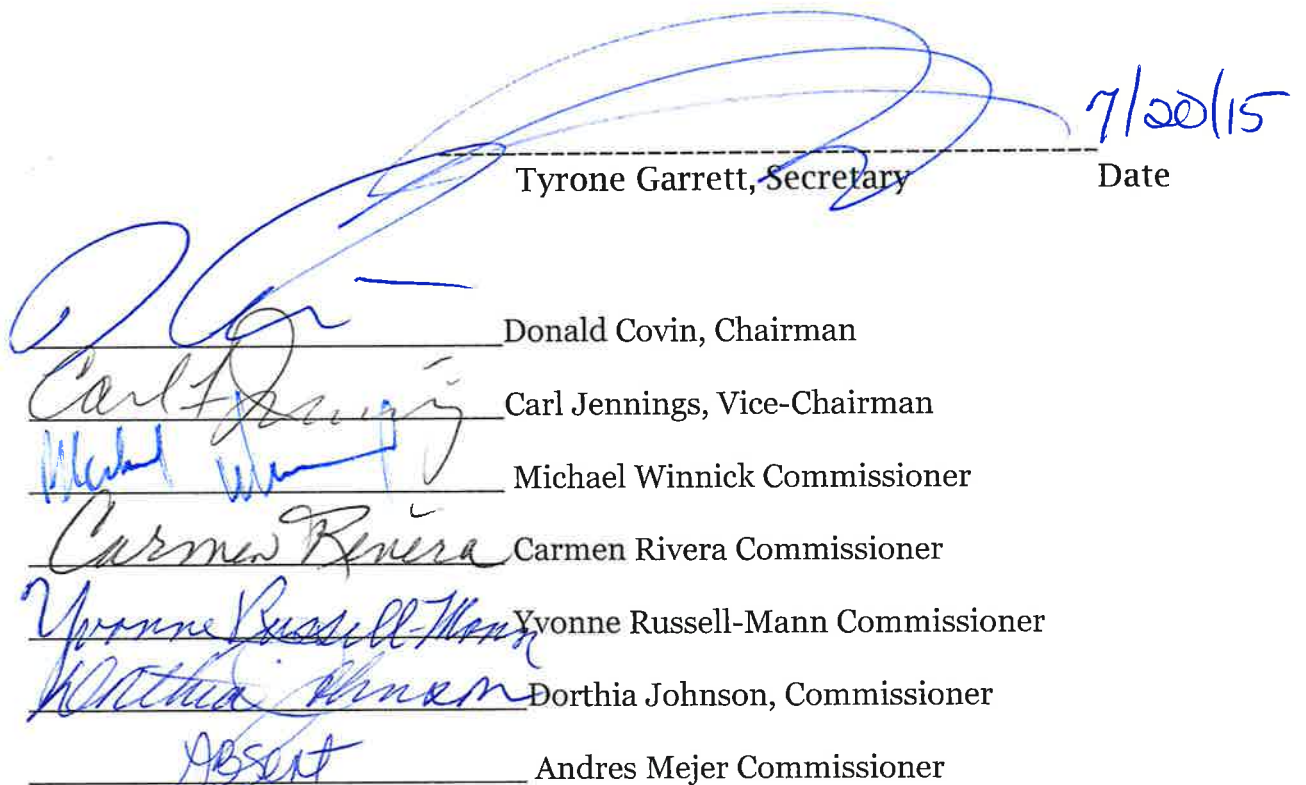 7/20/15
Tyrone Garrett, Secretary Date
Donald Covin, Chairman
Carl F Jennings Carl Jennings, Vice-Chairman
Michael Winnick Michael Winnick Commissioner
Carmen Rivera Carmen Rivera Commissioner
Yvonne Russell-Mann Yvonne Russell-Mann Commissioner
Dorthia Johnson Dorthia Johnson, Commissioner
ABSent Andres Mejer Commissioner